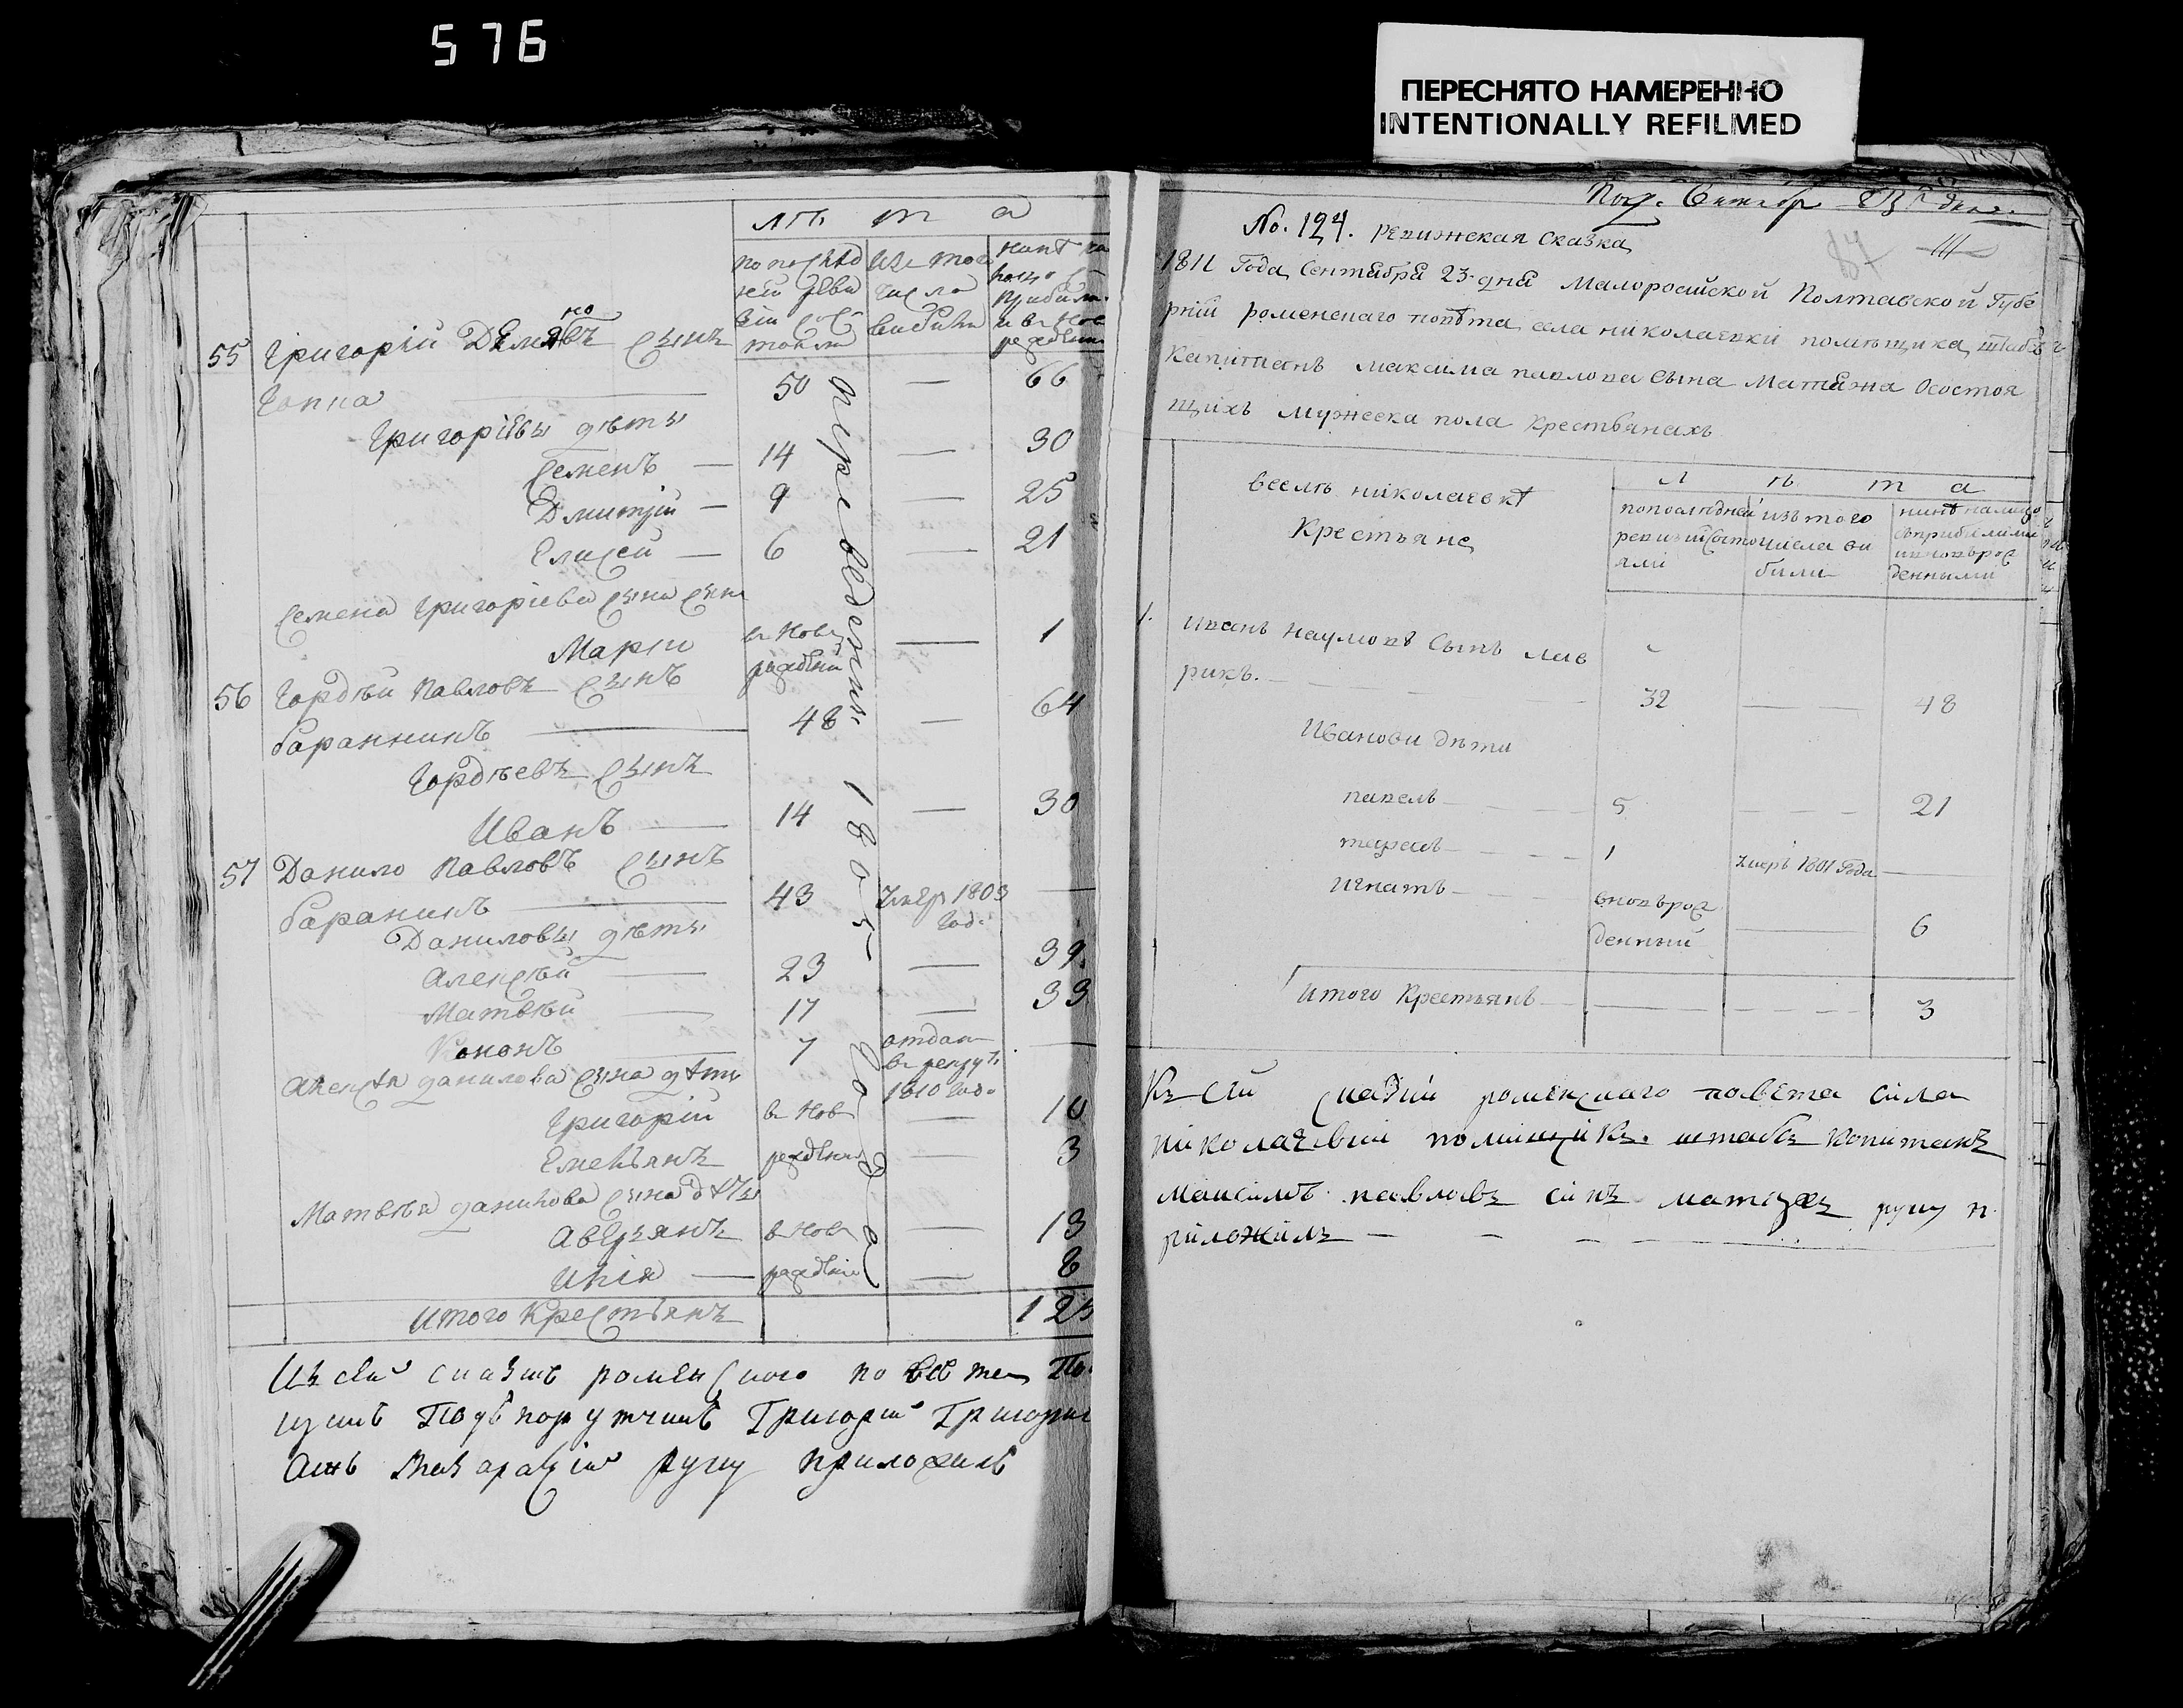 576
ПЕРЕСНЯТО НАМЕРЕННО
INTENTIONALLY REFILMED
лѣ т а
по послѣд
ней реви
зіи сос
тояли
изъ того
числа
выбыли
55 Григорій Демяновъ сынъ
Гопка 50 — 66
Григорiевы дѣти
Семенъ — 14 — 30
Дмитрій — 9 — 25
Елисей — 6 — 21
Семена Григоріева сына сынъ
Марко в нов рожденй — 1
56 Гордѣй Павловъ сынъ
Баранникъ 48 — 64
Гордѣевъ сынъ
Иванъ — 14 — 30
57 Данило Павловъ сынъ
Бараникъ 43 умер 1803 год. —
Даниловы дѣти
Алексѣй — 23 — 39.
Матвѣй — 17 — 33
Кононъ — 7 отдан в рекруты 1810 года —
Алексѣя данилова сына дѣти
Григорій в нов — 10
Емельянъ рожденй — 3
Матвѣя данилова сына дѣти
Аверьянъ в нов — 13
Илія — рожденй — 8
переведены 1805 года
итого крестьянъ 125
Къ сей сказкѣ роменского повета
Подъпорутчикъ Григорій
руку приложилъ
No. 124. ревижская сказка
87 111
1811 Года Сентября 23 дня Малоросийской Полтавской Губе
рній роменскаго повѣта села николаевки помѣщика, штабъ
Капитанъ максима павлова сына Осостоя
щихъ мужеска пола Крестьянахъ
л ѣ т а
вселѣ николаевкѣ
Крестьяне
попоследней
ревизіи состо
яли
изътого
числа вы
били
нинѣ налицо
съприбилими
иновърож
денными
1. иванъ наумовъ сынъ лав
рикъ. — — — 32 — — 48
Иванови дѣти
павелъ — — — 5 — — — 21
тарасъ — — — 1 умеръ 1801 Года —
игнатъ — — вновърож
денный — 6
итого Крестьянъ — — — — — — 3
Къ сей сказки роменскаго повета села
николаевки помищикъ. штабъ Капитанъ
максимъ павловъ синъ руку п
риложилъ — — — —